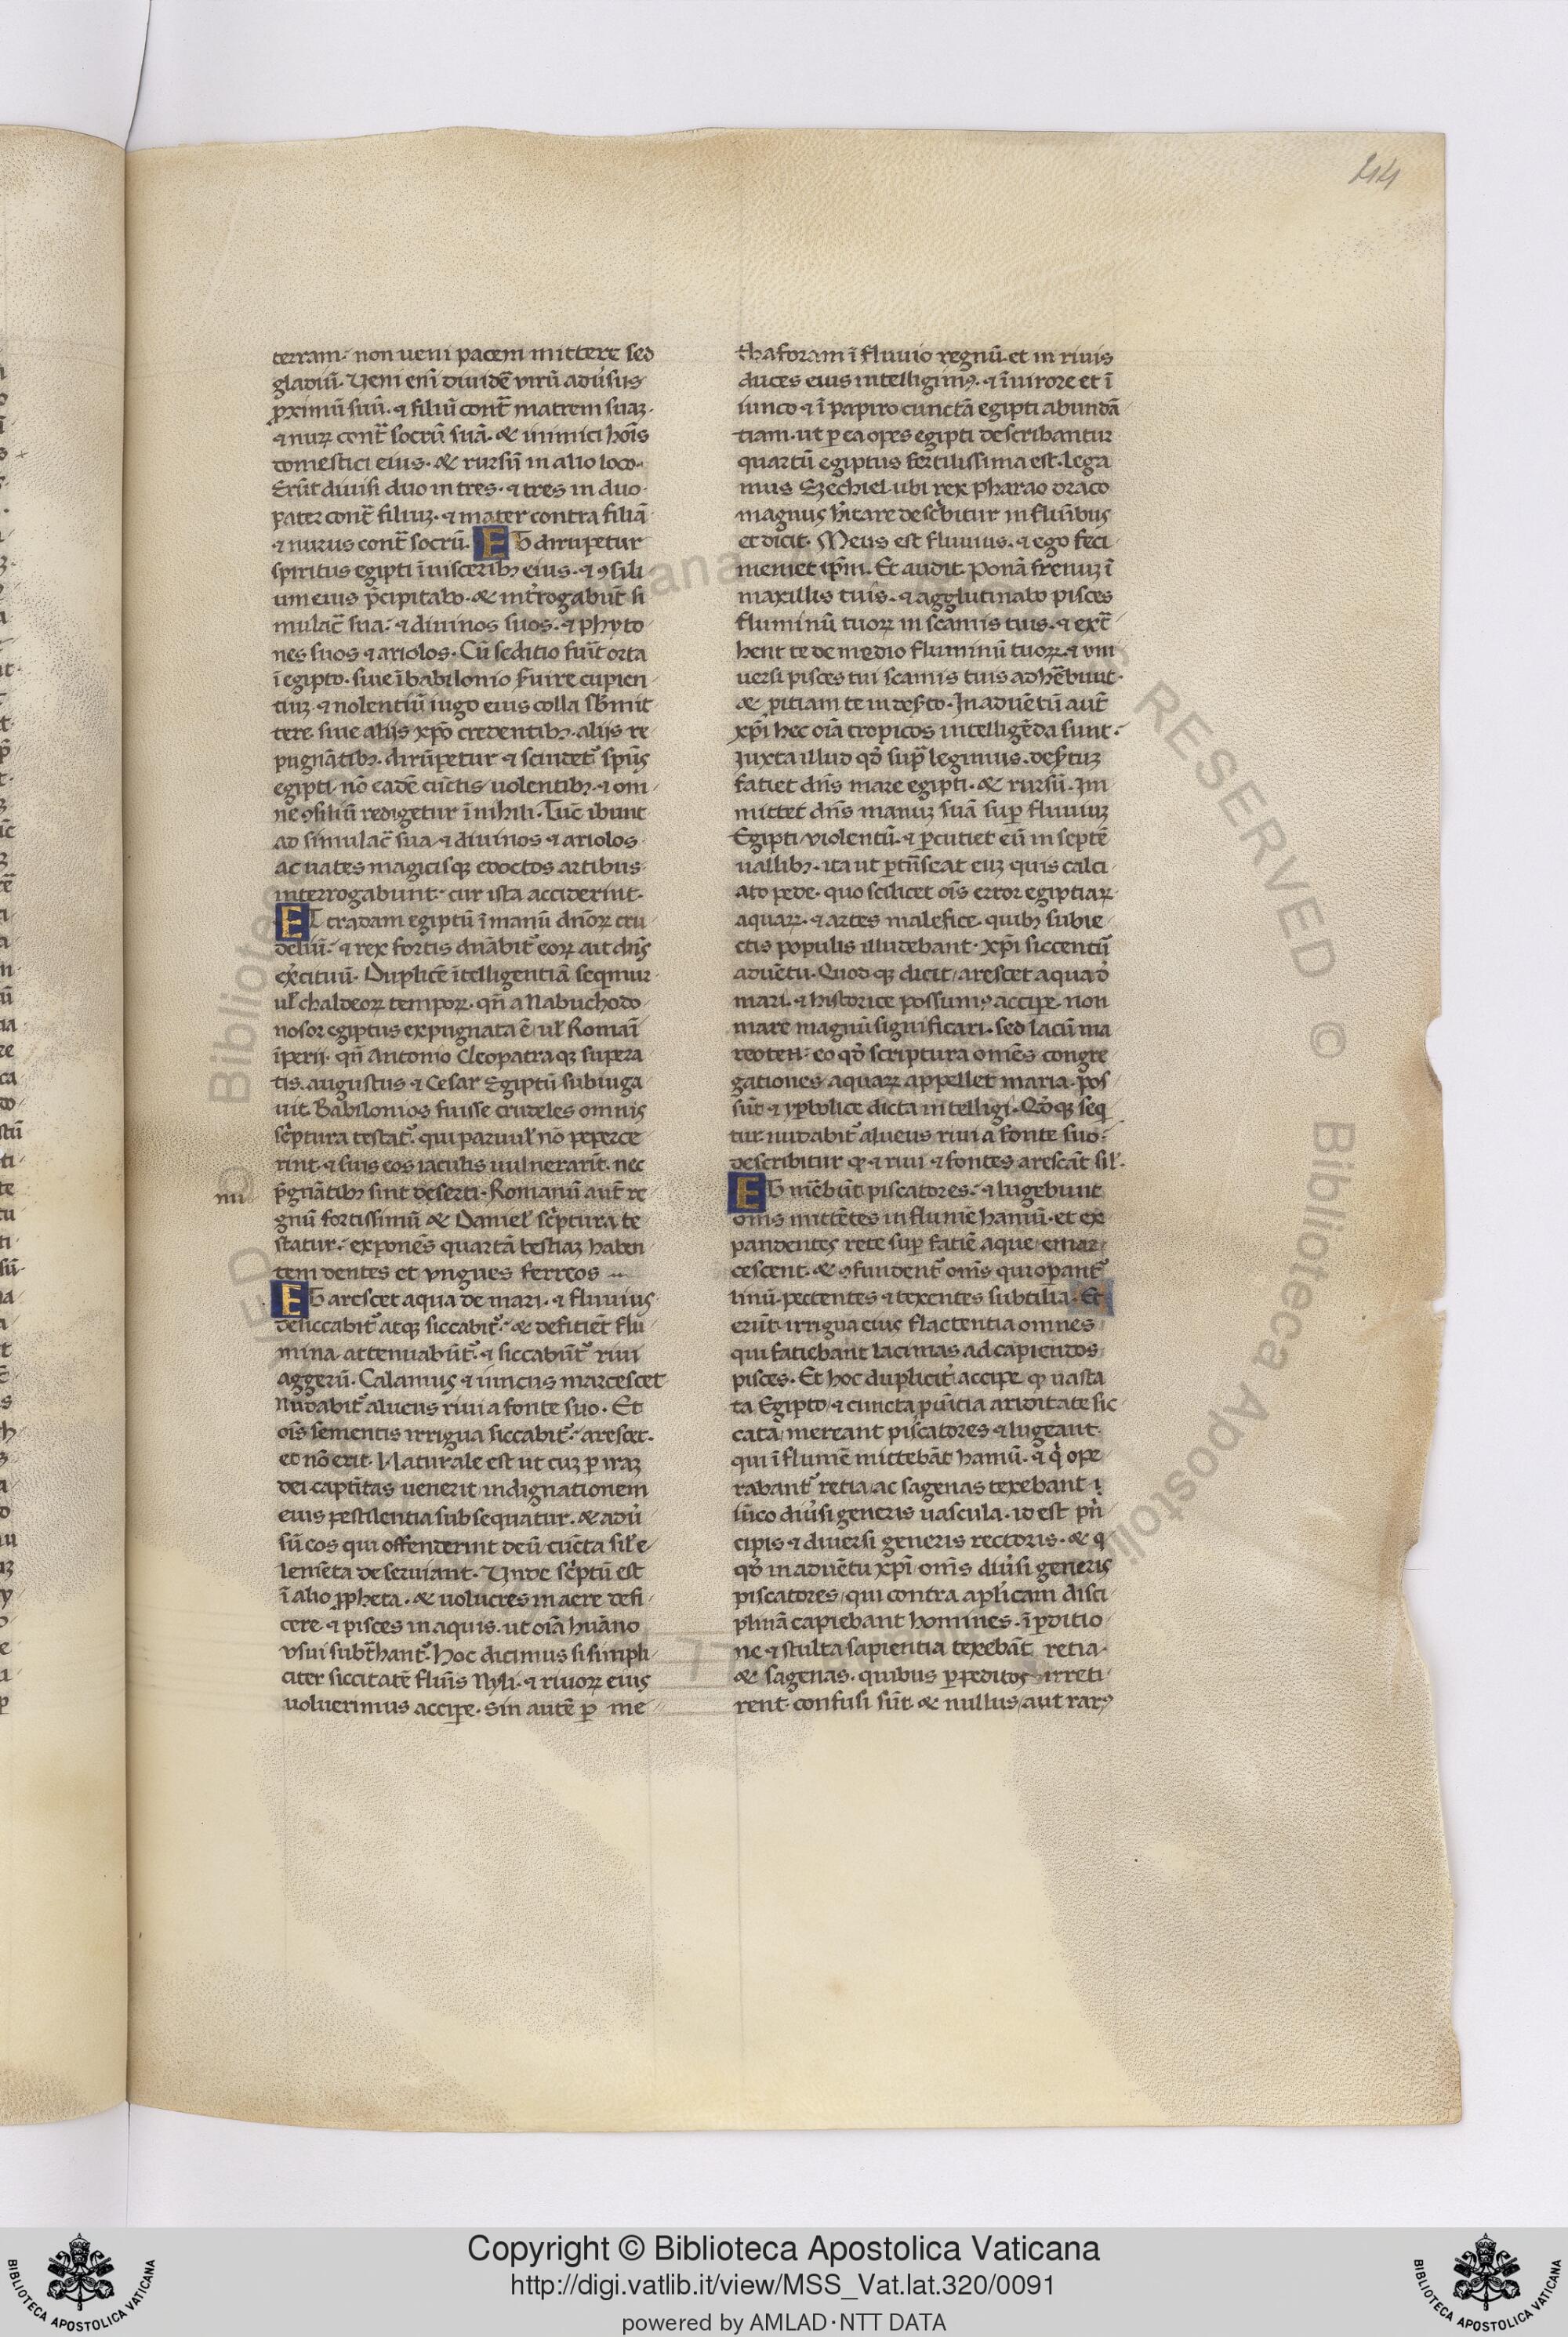 44
terram· non ueni pacem mittere sed
gladiũ· Veni enĩ diuidẽ virũ adũsus
ꝓximũ suũ· ⁊ filiũ cont̃ matrem suaꝫ·
⁊ nuꝝ cont̃ socrũ suã· & inimici hoĩs
domestici eius· & rursũ in alio loco·
Erũt diuisi duo in tres· ⁊ tres in duo·
pater cont̃ filiuꝫ· ⁊ mater contra filiã
⁊ nurus cont̃ socrũ· ET dirrupetur
spiritus egipti ĩ uisceribꝫ eius· ⁊ ꝯsili
um eius p̃cipitabo· & int̃rogabũt si
mulac̃ sua· ⁊ diuinos suos· ⁊ phyto
nes suos ⁊ ariolos· Cũ seditio fuĩt orta
ĩ egipto· siue ĩ babilonio s̃uire cupien
tiuꝫ ⁊ nolentiũ iugo eius colla sb̃mit
tere siue alijs xp̃o credentibꝫ· alijs re
pugnãtibꝫ· dirũpetur ⁊ scindet᷑ sp̃us
egipti· nõ eadẽ cũctis uolentibꝫ· ⁊ om
ne ꝯsiliũ redigetur ĩ nihili· Tũc ibunt
ad simulac̃ sua ⁊ diuinos ⁊ ariolos
ac uates magicisqꝫ edoctos artibus
interrogabunt· cur ista acciderint·
ET tradam egiptũ ĩ manũ dñoꝝ cru
deliũ· ⁊ rex fortis dñabit᷑ eoꝝ ait dñs
exercituũ· Duplicẽ ĩtelligentiã seqmur
ul̃ chaldeoꝝ tempoꝝ· qñ a Nabuchodo
nosor egiptus expugnata ẽ ul̃ Romaĩ
ĩperij· qñ Antonio Cleopatraqꝫ supera
tis· augustus ⁊ Cesar Egiptũ subiuga
uit· Babilonios fuisse crudeles omnis
sc̃ptura testat᷑· qui paruul̃ nõ peperce
rint· ⁊ suis eos iaculis uulnerarĩt· nec
p̃gnãtibꝫ sint deserti· Romanũ aut̃ re
gnũ fortissimũ & Daniel̃ sc̃ptura te
statur· exponẽs quartã bestiaꝫ haben
tem dentes et ungues ferreos
ET arescet aqua de mari· ⁊ fluuius
desiccabit᷑ atqꝫ siccabit᷑· & deficiẽt flu
mina· attenuabũt᷑ ⁊ siccabũt᷑ riui
aggerũ· Calamus ⁊ iuncus marcescet
nudabit᷑ alueus riui a fonte suo· Et
oĩs sementis irrigua siccabit᷑· arescet·
et nõ erit· Naturale est ut cuꝫ ꝑ iraꝫ
dei captĩtas uenerit indignationem
eius pestilentia subsequatur· & adũ
sũ eos qui offenderint deũ cũcta sil̃ e
lemẽta deseruiant· Unde sc̃ptũ est
ĩ alio ꝓpheta· & uolucres in aere defi
cere ⁊ pisces in aquis· ut oĩa hũano
usui subt̃hant᷑· Hoc dicimus si simpli
citer siccitatẽ flũis Nyli ⁊ riuoꝝ eius
uoluerimus accipe· sin autẽ ꝑ me
thaforam ĩ fluuio regnũ et in riuis
duces eius intelligimꝰ· ⁊ ĩ uirore et ĩ
iunco ⁊ ĩ papiro cunctã egipti abundã
tiam· ut ꝑ ea opes egipti describantur
quartũ egiptus fertilissima est· Lega
mus Ezechiel· ubi rex pharao draco
magnus h̃itare desc̃bitur in fluĩbus
et dicit· Meus est fluuius· ⁊ ego feci
memet ip̃m· Et audit· Ponã frenuꝫ ĩ
maxillis tuis· ⁊ agglutinabo pisces
fluminũ tuoꝝ in scamis tuis· ⁊ ext̃
hent te de medio fluminũ tuoꝝ· ⁊ vni
uersi pisces tui scamis tuis adhẽbunt·
& ꝓitiam te in des̃to· In aduẽtũ aut̃
xp̃i hec oĩa tropicos intelligẽda sunt·
Iuxta illud qd̃ sup̃ legimus· des̃tuꝫ
fatiet dñs mare egipti· & rursũ· Im
mittet dñs manuꝫ suã suꝑ fluuiuꝫ
Egipti violentũ· ⁊ ꝑcutiet eũ in septẽ
uallibꝫ· ita ut ꝑtñseat euꝫ quis calci
ato pede· quo scilicet oĩs error egiptiaꝝ
aquaꝝ· ⁊ artes malefice· quibꝫ subie
ctis populis illudebant· xp̃i siccentũ
aduẽtu· Quodqꝫ dicit arescet aqua d̃
mari· ⁊ historice possumꝰ accipe· non
mare magnũ significari· sed lacũ ma
reoten· eo qd̃ scriptura omẽs congre
gationes aquaꝝ appellet maria· pos
sũt ⁊ yꝑbolice dicta intelligi· Qd̃qꝫ seq
tur nudabit᷑ alueus riui a fonte suo·
describitur ꝙ ⁊ riui ⁊ fontes arescãt sil̃·
ET mẽbũt piscatores· ⁊ lugebunt
om̃s mittẽtes in flumẽ hamũ· et ex
pandentes rete suꝑ fatiẽ aque emar
cescent· & ꝯfundent᷑ om̃s qui oꝑant᷑
linũ· pectentes ⁊ texentes subtilia· Et
erũt irrigua eius flactentia omnes
qui fatiebant lacimas ad capiendos
pisces· Et hoc duplicit̃ accipe ꝙ uasta
ta Egipto ⁊ cuncta ꝓuĩcia ariditate sic
cata mereant piscatores ⁊ lugeant
qui ĩ flumẽ mittebãt hamũ· ⁊ q̃ ope
rabant᷑ retia ac sagenas texebant ⁊
iũco diũsi generis uascula· id est pñ
cipis ⁊ diuersi generis rectoris· & q
qd̃ in aduẽtu xp̃i om̃s diũsi generis
piscatores qui contra apl̃icam disci
plinã capiebant homines· ĩ ꝑditio
ne ⁊ stulta sapientia texebãt retia·
& sagenas· quibus ꝑpeditos irreti
rent confusi sũt & nullus aut rarꝰ
Copyright © Biblioteca Apostolica Vaticana
http://digi.vatlib.it/view/MSS_Vat.lat.320/0091
powered by AMLAD·NTT DATA